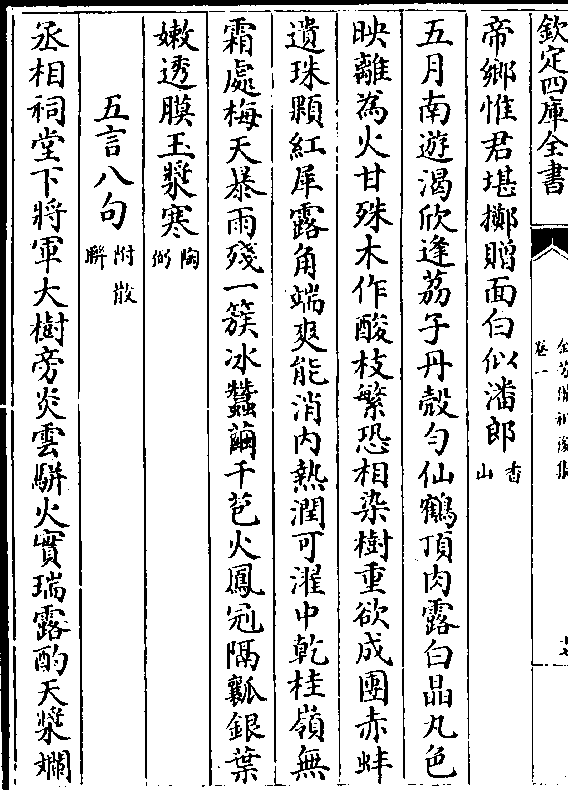 欽定四庫全書
卷一
帝鄉惟君堪擲贈面白似潘郎香山
五月南遊渴欣逢荔子丹殼勻仙鶴頂肉露白晶丸色
映離為火甘殊木作酸枝繁恐相染樹重欲成團赤蚌
遺珠顆紅犀露角端爽能消内熱潤可濯中乾桂嶺無
霜處梅天暴雨殘一簇冰蠶繭千苞火鳳冠隔瓤銀葉
嫩透膜玉漿寒陶弼
五言八句附散聯
丞相祠堂下將軍大樹旁炎雲駢火實瑞露酌天漿爛